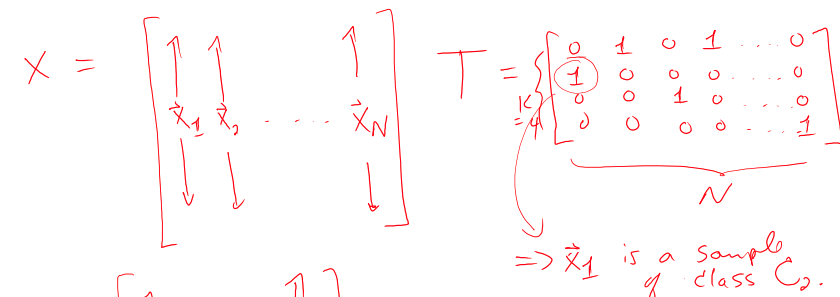 X = [ x⃗1 x⃗2 ..... x⃗N ] T = [ 0 1 0 1 .... 0
1 0 0 0 .... 0
K = 4 0 0 1 0 .... 0
0 0 0 0 .... 1 ]
N
=> x⃗1 is a sample
of class C2.